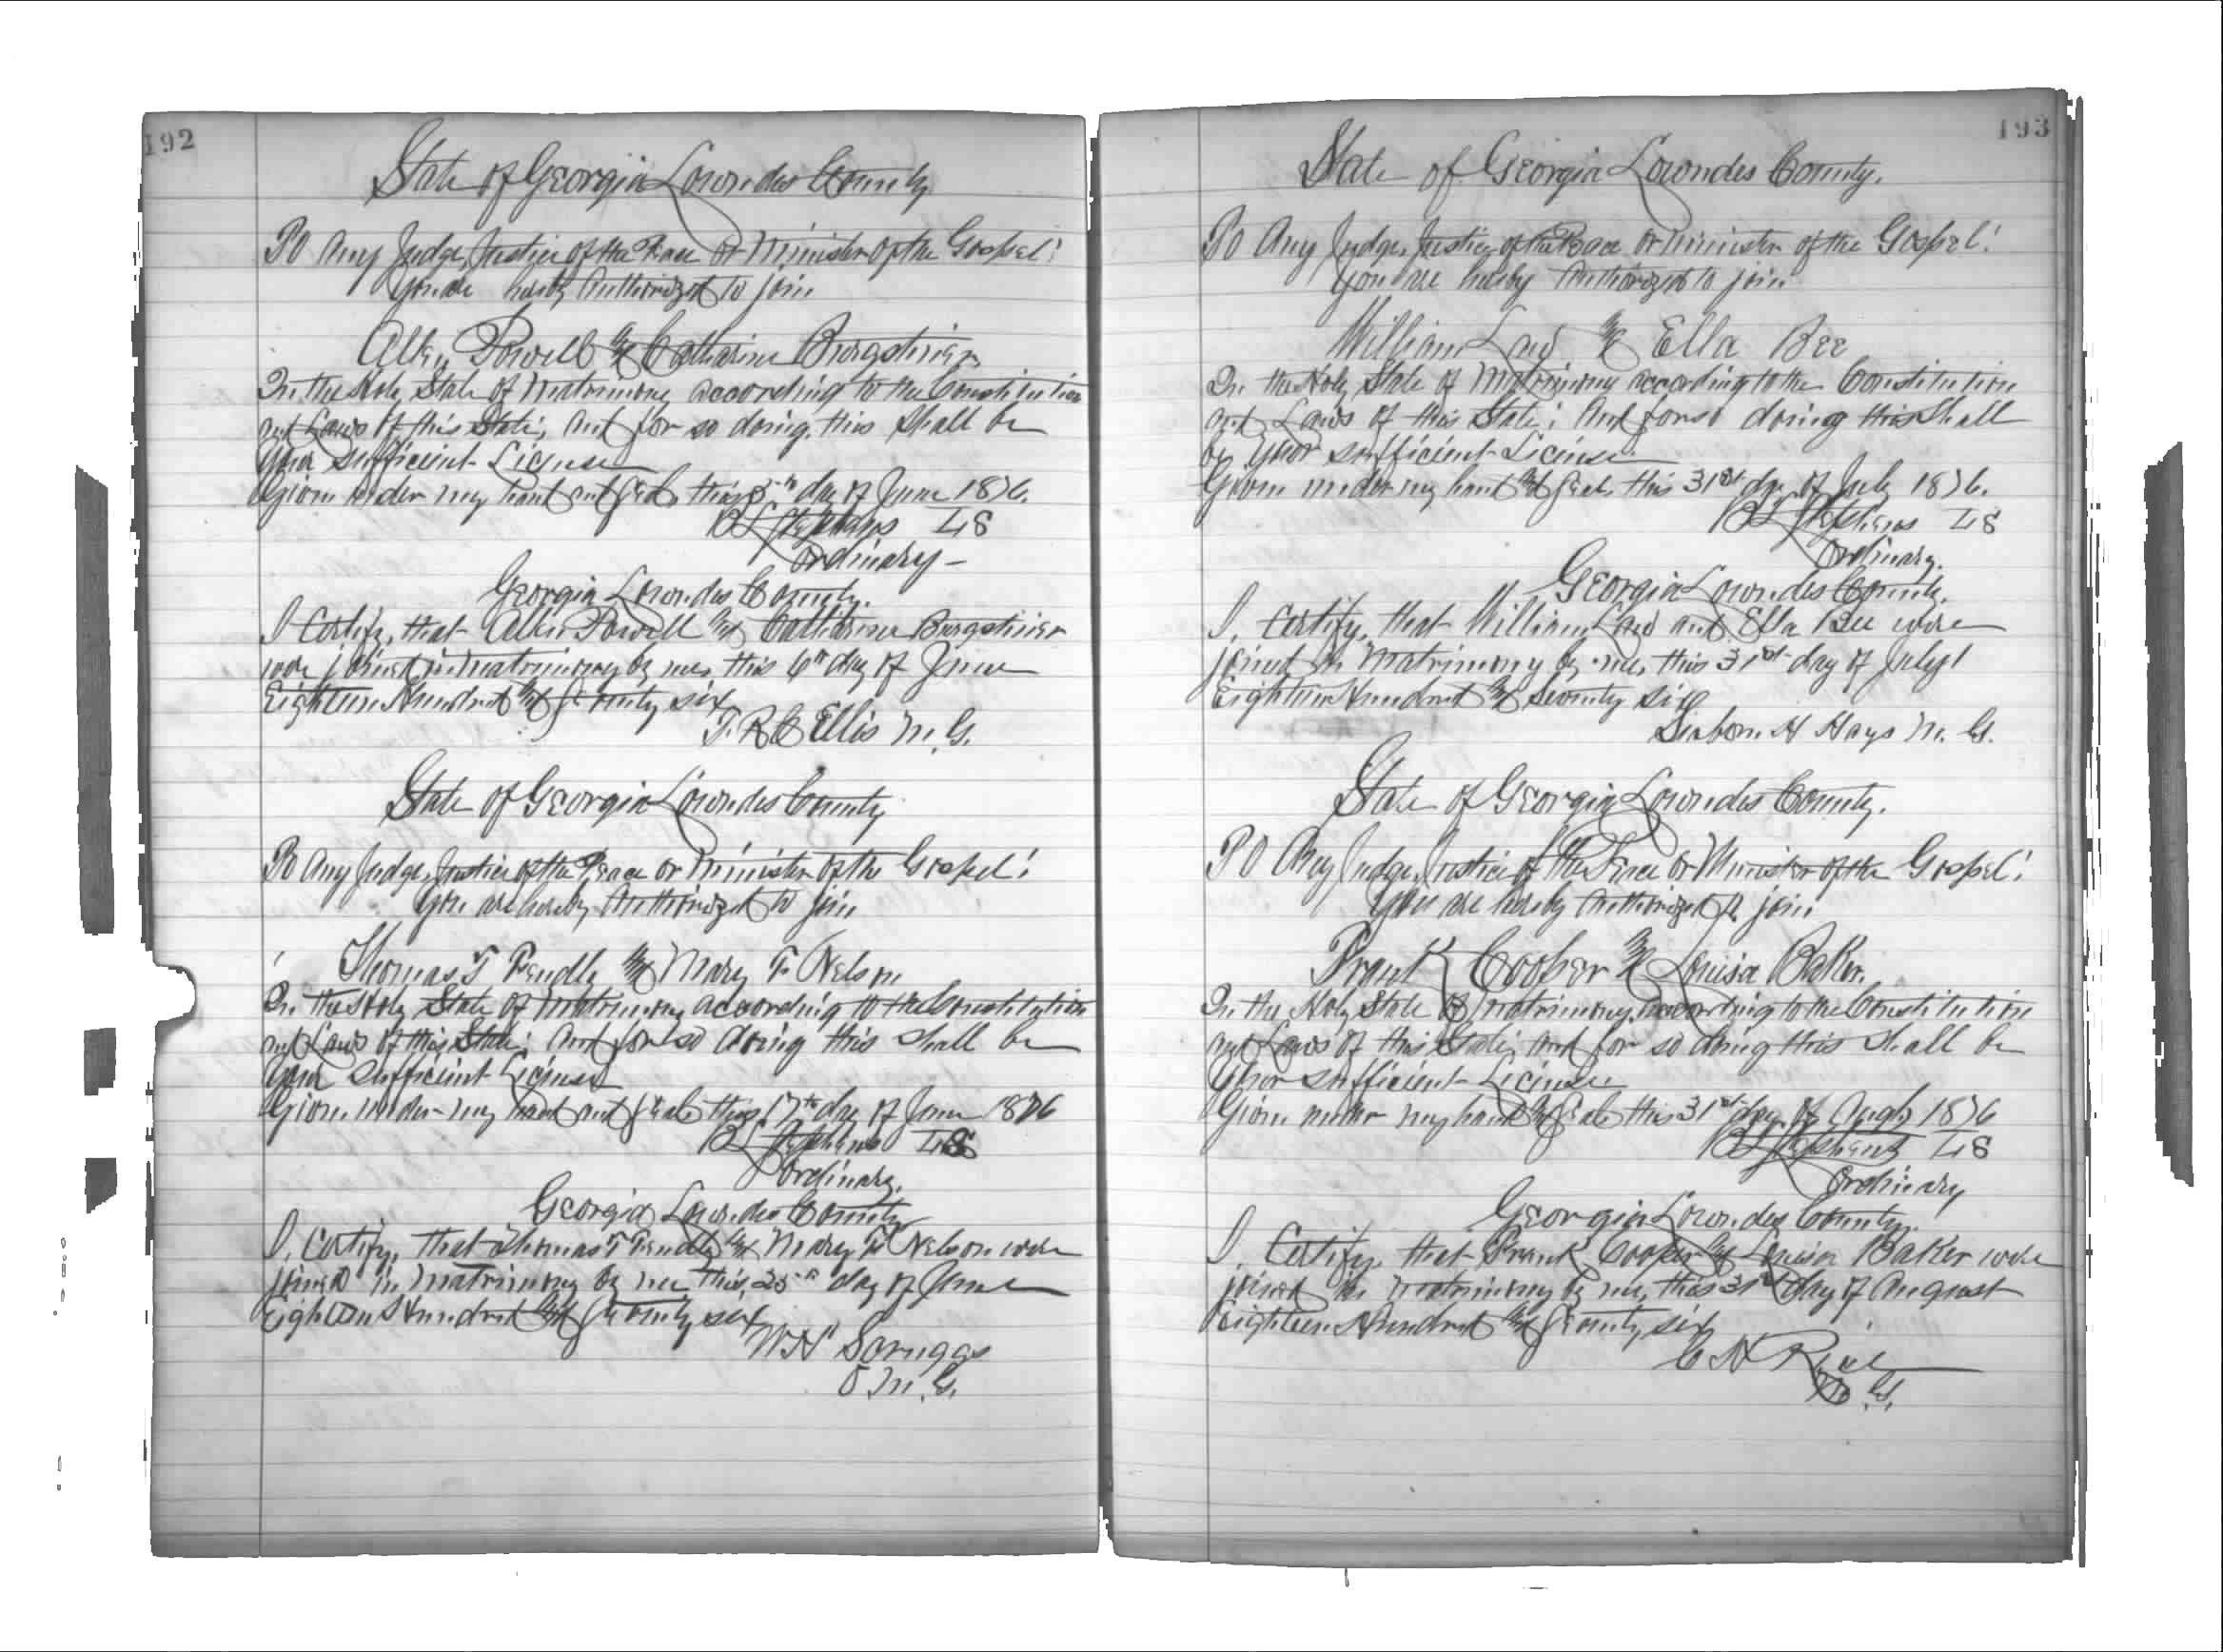 192
State of Georgia Lowndes County
To Any Judge, Justice of the Peace Or Minister of the Gospel!
You are hereby Authorized to join
Allen Powell and Catharine Burgstiner
In the Holy State of Matrimony according to the Constitution
and Laws of this State; And for so doing this Shall be
Your Sufficient License
Given under my hand and Seal this 5th day of June 1876.
BL Stephens LS
Ordinary
Georgia Lowndes County.
I Certify, that Allen Powell and Catharine Burgstiner
were joined in Matrimony by me, this 6th day of June
Eighteen Hundred and Seventy six
T. R C Ellis M. G.
State of Georgia Lowndes County
To Any Judge, Justice of the Peace or Minister of the Gospel!
You are hereby Authorized to join
Thomas T Fendly and Mary F Nelson
In the Holy State of Matrimony according to the Constitution
and Laws of this State; And for so doing this shall be
Your Sufficient License
Given under my hand and Seal this 17th day of June 1876
BL Stephens LS
Ordinary.
Georgia Lowndes County
I, Certify, that Thomas T Fendly and Mary F Nelson were
joined in Matrimony by me this, 25th day of June
Eighteen Hundred and Seventy six
W H Scruggs
M. G.
193
State of Georgia Lowndes County.
To Any Judge, Justice of the Peace or Minister of the Gospel!
You are hereby Authorized to join
William Law and Ella Bee
In the Holy State of Matrimony according to the Constitution
and Laws of this State; And for so doing this Shall
be Your sufficient License
Given under my hand and Seal, this 31st day of July 1876.
BL Stephens LS
Ordinary.
Georgia Lowndes County.
I, Certify, that William Law and Ella Bee were
joined in Matrimony by me, this 31st day of July
Eighteen Hundred and Seventy six
H Hays M. G.
State of Georgia Lowndes County.
To Any Judge, Justice of the Peace Or Minister of the Gospel!
You are hereby Authorized to join
Frank Cooper and Louisa Baker.
In the Holy State of Matrimony, according to the Constitution
and Laws of this State; And for so doing this Shall be
Your sufficient License
Given under my hand and Seal this 31st day of Augt 1876
BL Stephens LS
Ordinary
Georgia Lowndes County.
I, Certify, that Frank Cooper and Louisa Baker were
joined in Matrimony by me, this 31st day of August
Eighteen Hundred and Seventy six
C H
M. G.